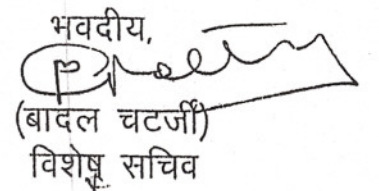 भवदीय,
(बादल चटर्जी)
विशेष सचिव